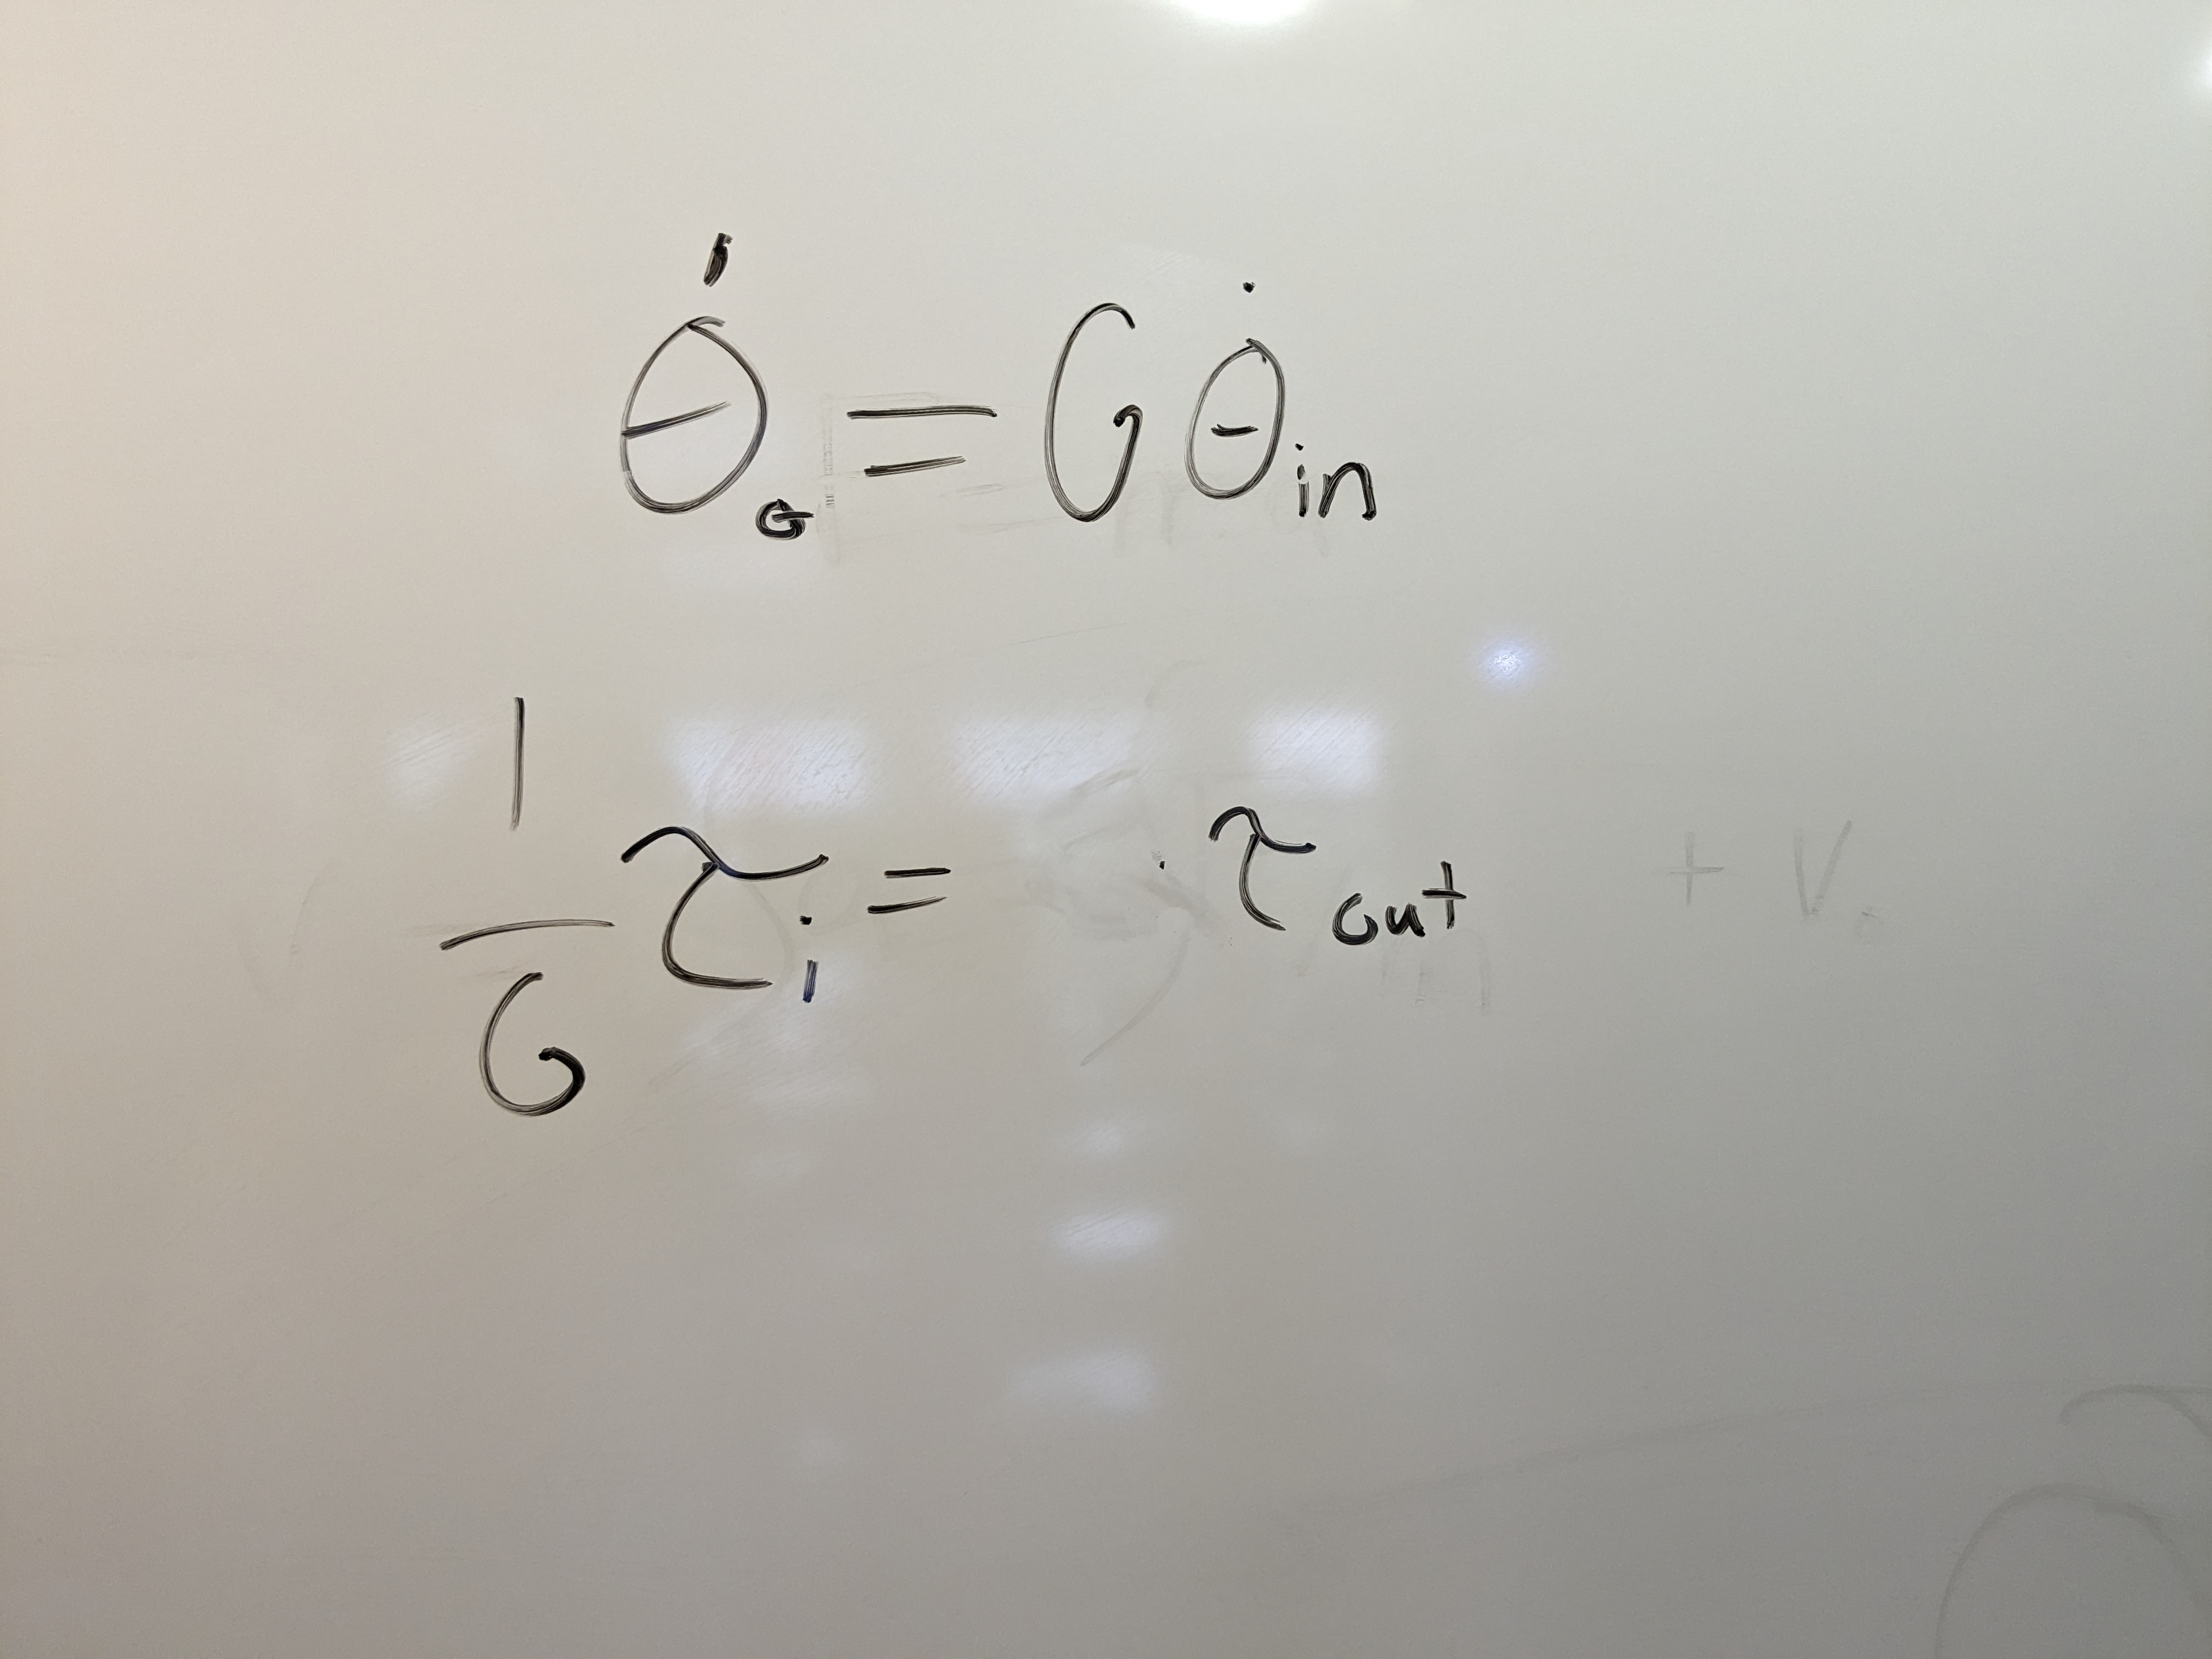 θ̇o = G θ̇in
1/G τi = τout
+ V